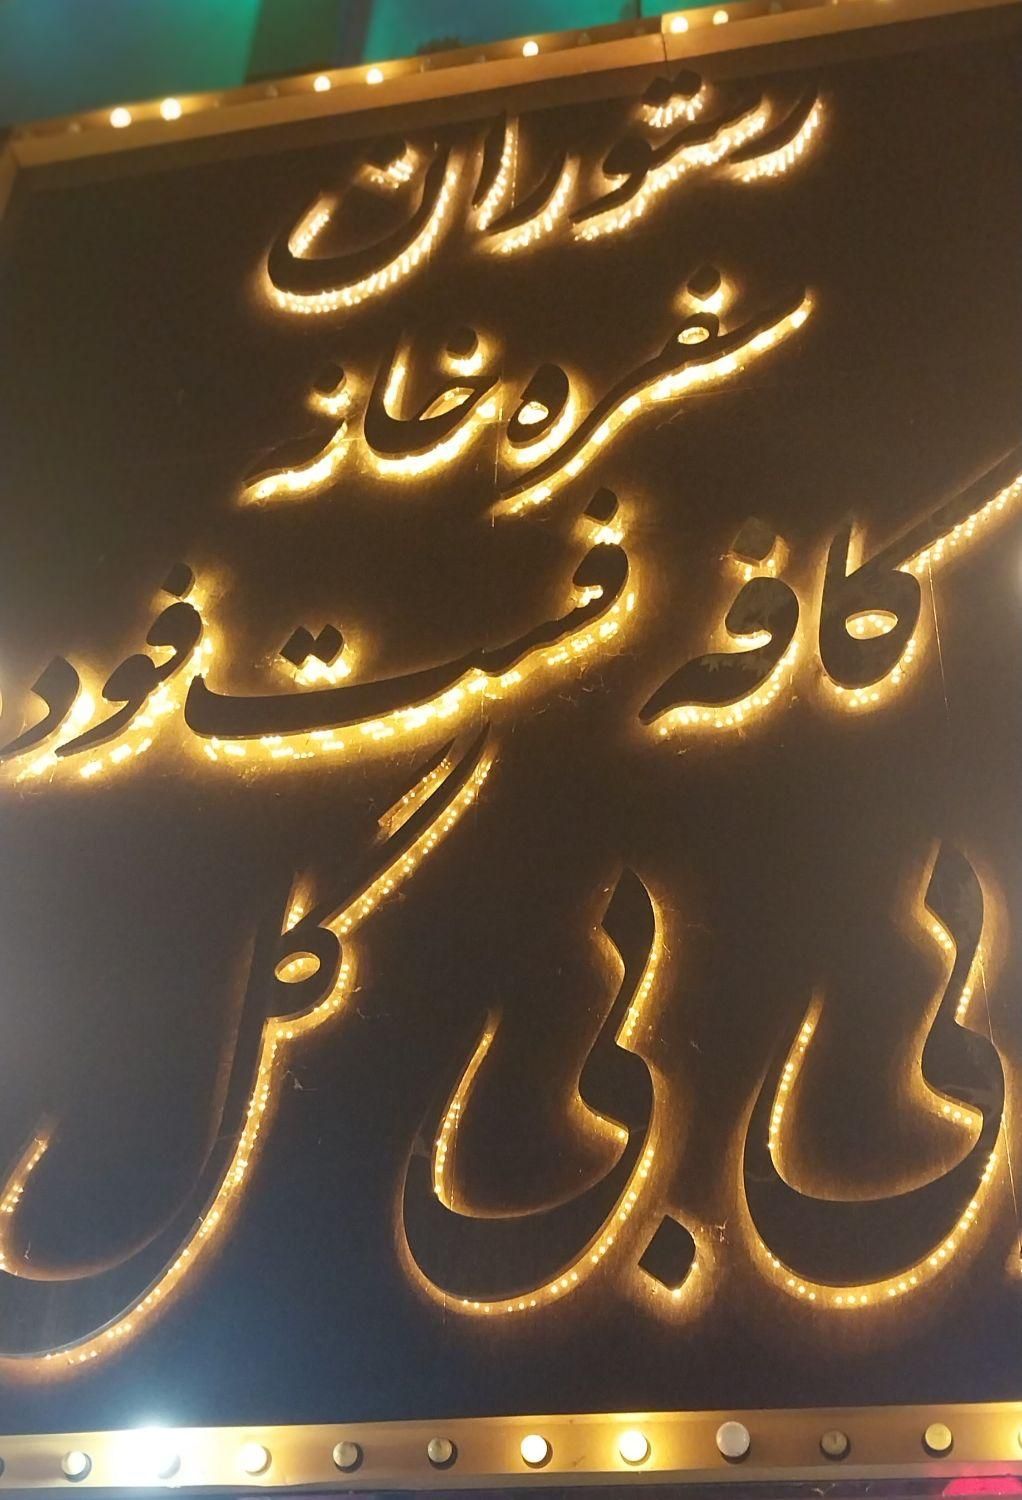 رستوران
سفره خانه
کافه فست فود
بی بی گل